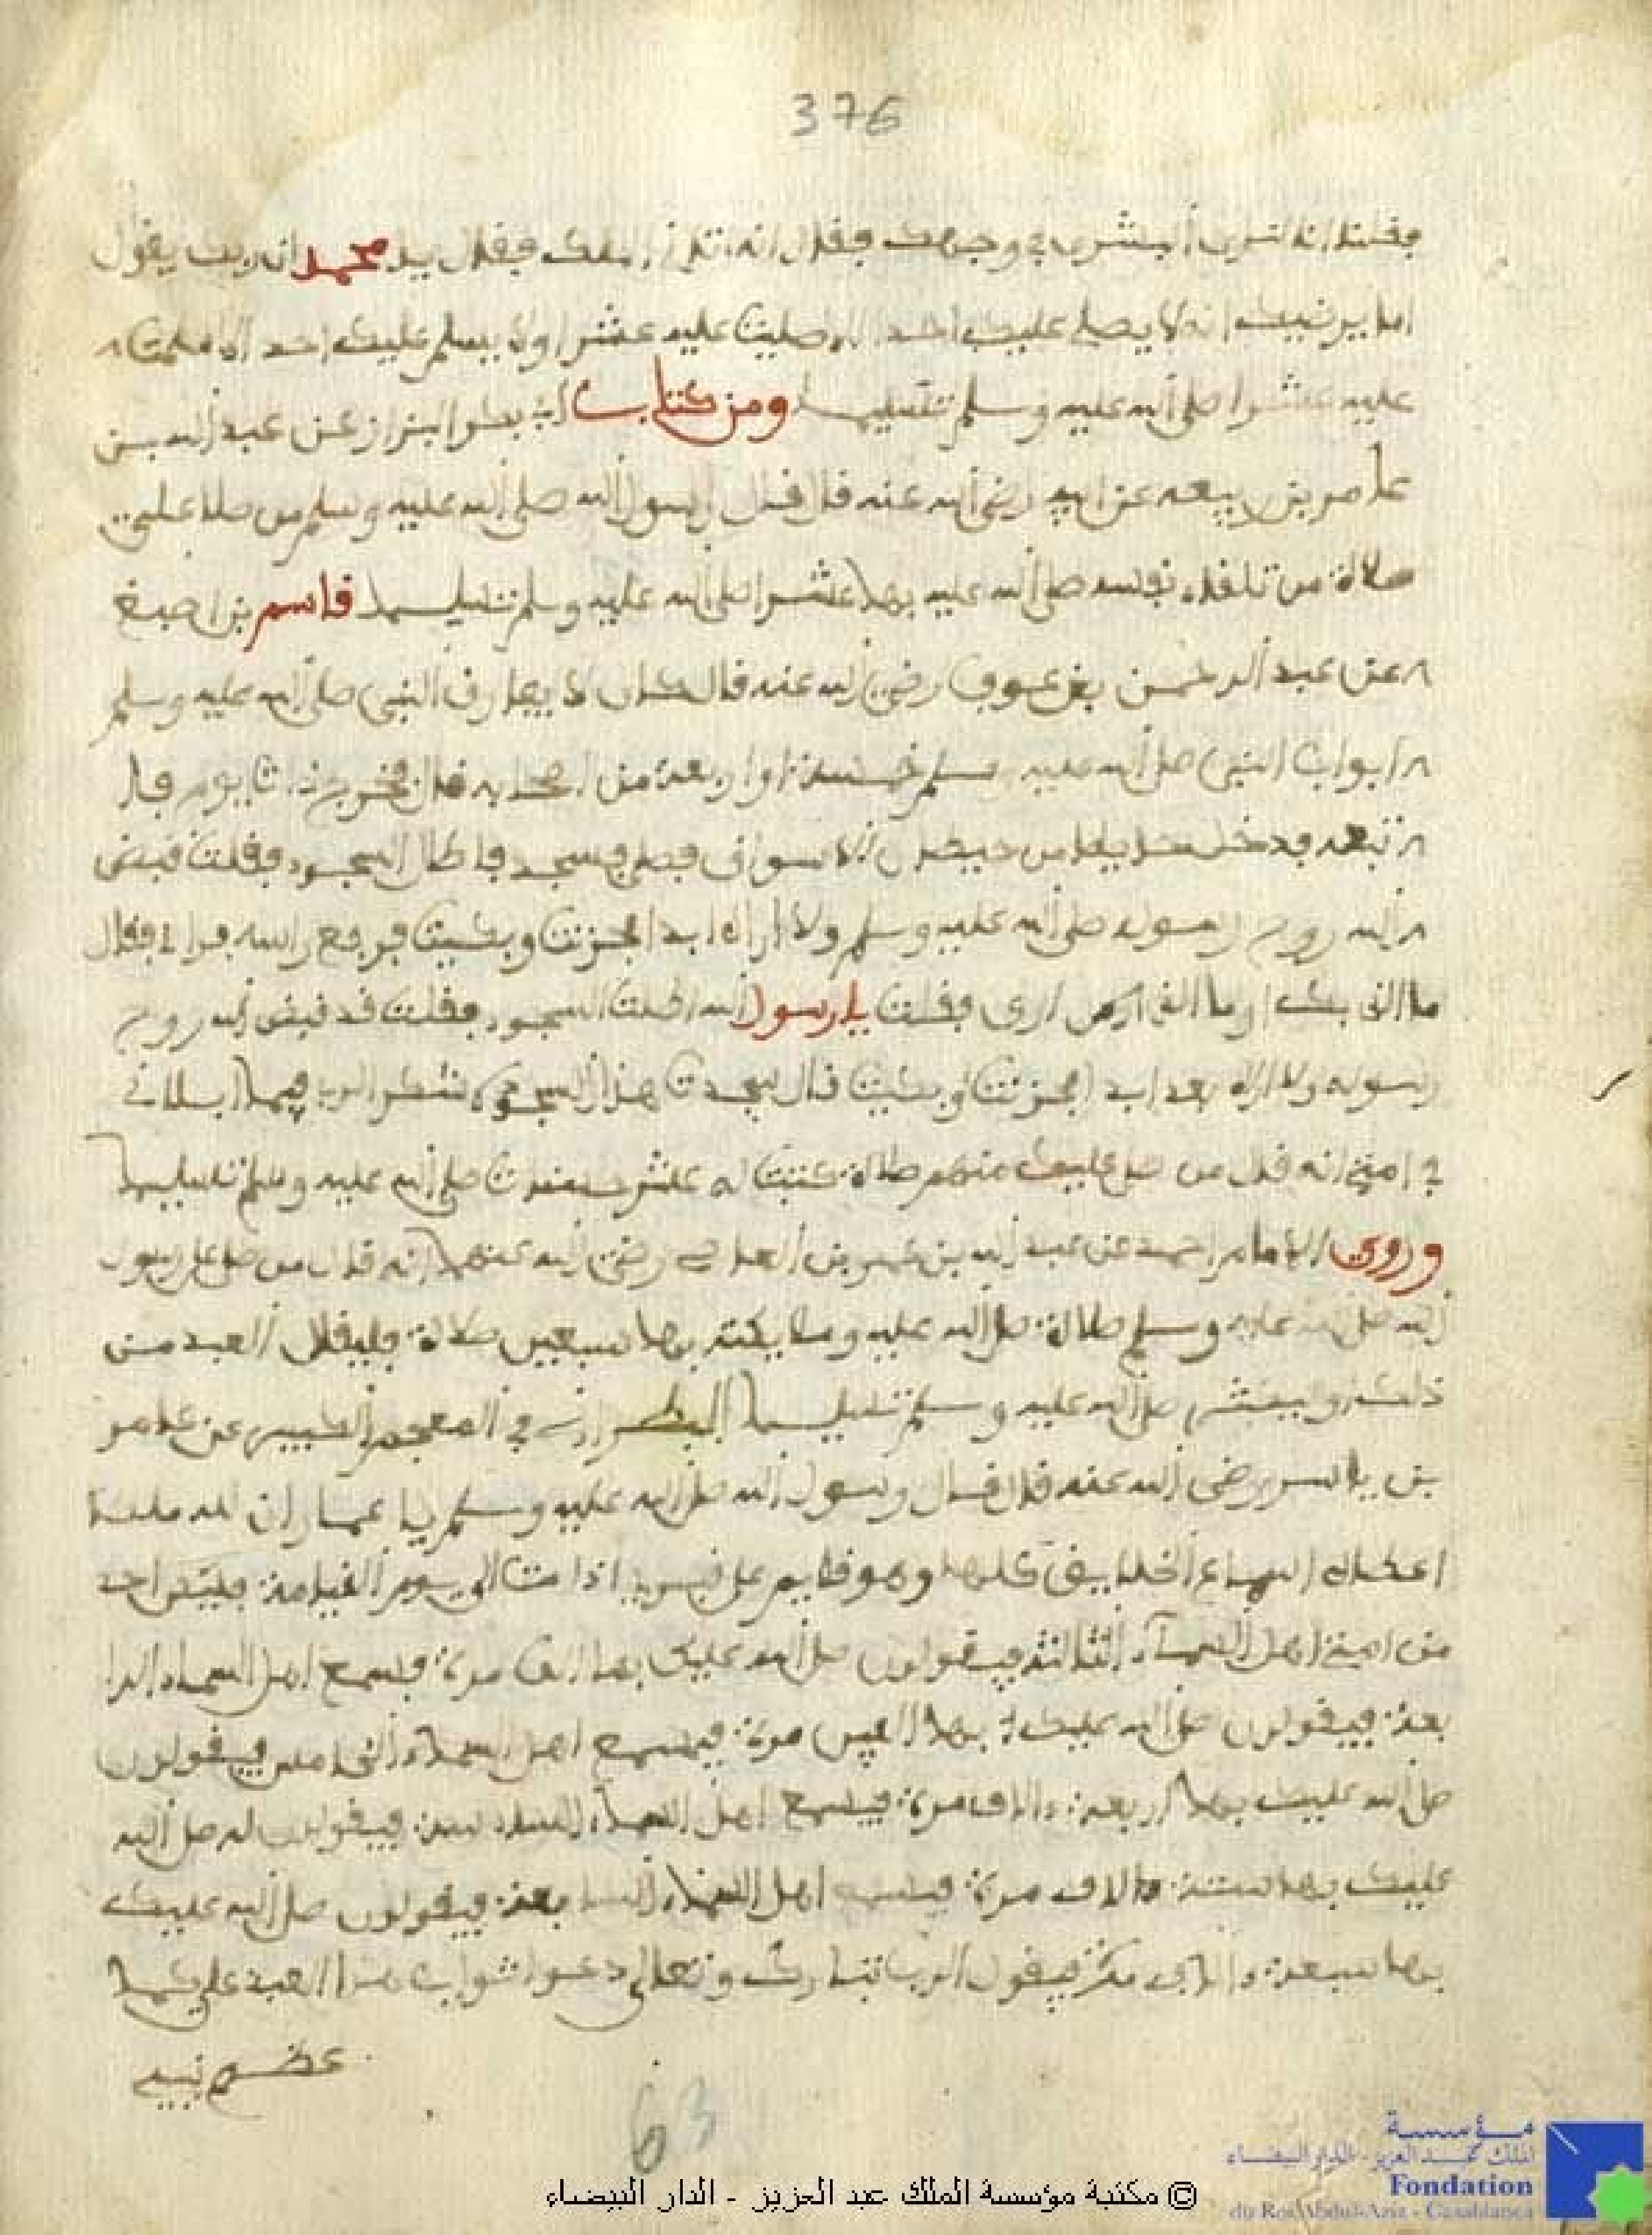 376
فقلنا انا نرى البشرى في وجهك فقال انه اتاني الملك فقال يا محمد ان ربك يقول
اما يرضيك انه لا يصلي عليك احد الا صليت عليه عشرا ولا يسلم عليك احد الا سلمت
عليه عشرا صلى الله عليه وسلم تسليما ومن كتاب ابي بكر البزاز عن عبد الله بن
عامر بن ربيعه عن ابيه رضي الله عنه قال قال رسول الله صلى الله عليه وسلم من صلا علي
صلاة من تلقاء نفسه صلى الله عليه بها عشرا صلى الله عليه وسلم تسليما قاسم بن اصبغ
عن عبد الرحمن بن عوف رضي الله عنه قال كان لا يفارق النبي صلى الله عليه وسلم
ابواب النبي صلى الله عليه وسلم خمسة او اربعة من اصحابه قال فخرج ذات يوم فا
تبعه فدخل حايطا من حيطان الاسواق فصلى فسجد فاطال السجود فقلت قبض
الله روح رسوله صلى الله عليه وسلم ولا اراه ابدا فحزنت وبكيت فرفع راسه فرا فقال
ما الذي بك وما الذي ارى فقلت يا رسول الله اطلت السجود فقلت قد قبض الله روح
رسوله ولا اراه بعد ابدا فحزنت وبكيت قال سجدت هذا السجود شكرا لربي فيما ابلاني
في امتي انه قال من صلى عليك منهم صلاة كتبت له عشر حسنات صلى الله عليه وسلم تسليما
وروى الامام احمد عن عبد الله بن عمر بن العاص رضي الله عنهما انه قال من صلى على رسول
الله صلى الله عليه وسلم صلاة صلى الله عليه وملايكته بها سبعين صلاة فليقلل العبد من
ذلك او ليكثر صلى الله عليه وسلم تسليما الطبراني في المعجم الكبير عن عامر
بن ياسر رضي الله عنه قال قال رسول الله صلى الله عليه وسلم يا عمار ان لله ملكا
اعطاه اسماع الخلايق كلها وهو قايم على قبري اذا مت الى يوم القيامة فليس احد
من امتي اهل السمآء الثالثة فيقولون صلى الله عليك بها الف مرة فيسمع اهل السماء الرا
بعة فيقولون صلى الله عليك بها الفين مرة فيسمع اهل السماء الخامس فيقولون
صلى الله عليك بها اربعة ءالاف مرة فيسمع اهل السماء السادسة فيقولون له صلى الله
عليك بها ستة ءالاف مرة فيسمع اهل السماء السابعة فيقولون صلى الله عليك
بها سبعة ءالاف مرة فيقول الرب تبارك وتعالى دعوا ثواب هذا العبد علي كما
عظم نبيي
63
© مكتبة مؤسسة الملك عبد العزيز - الدار البيضاء
مؤسسة
الملك عبد العزيز - الدار البيضاء
Fondation
du Roi Abdul-Aziz - Casablanca